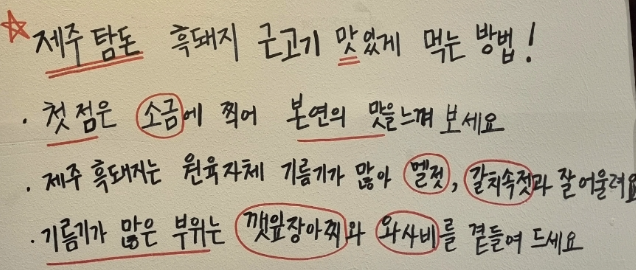 ☆ 제주 탐돈 흑돼지 근고기 맛있게 먹는 방법!
· 첫 점은 소금에 찍어 본연의 맛을 느껴 보세요
· 제주 흑돼지는 원육자체 기름기가 많아 멜젓, 갈치속젓과 잘 어울려요
· 기름기가 많은 부위는 깻잎장아찌와 와사비를 곁들여 드세요